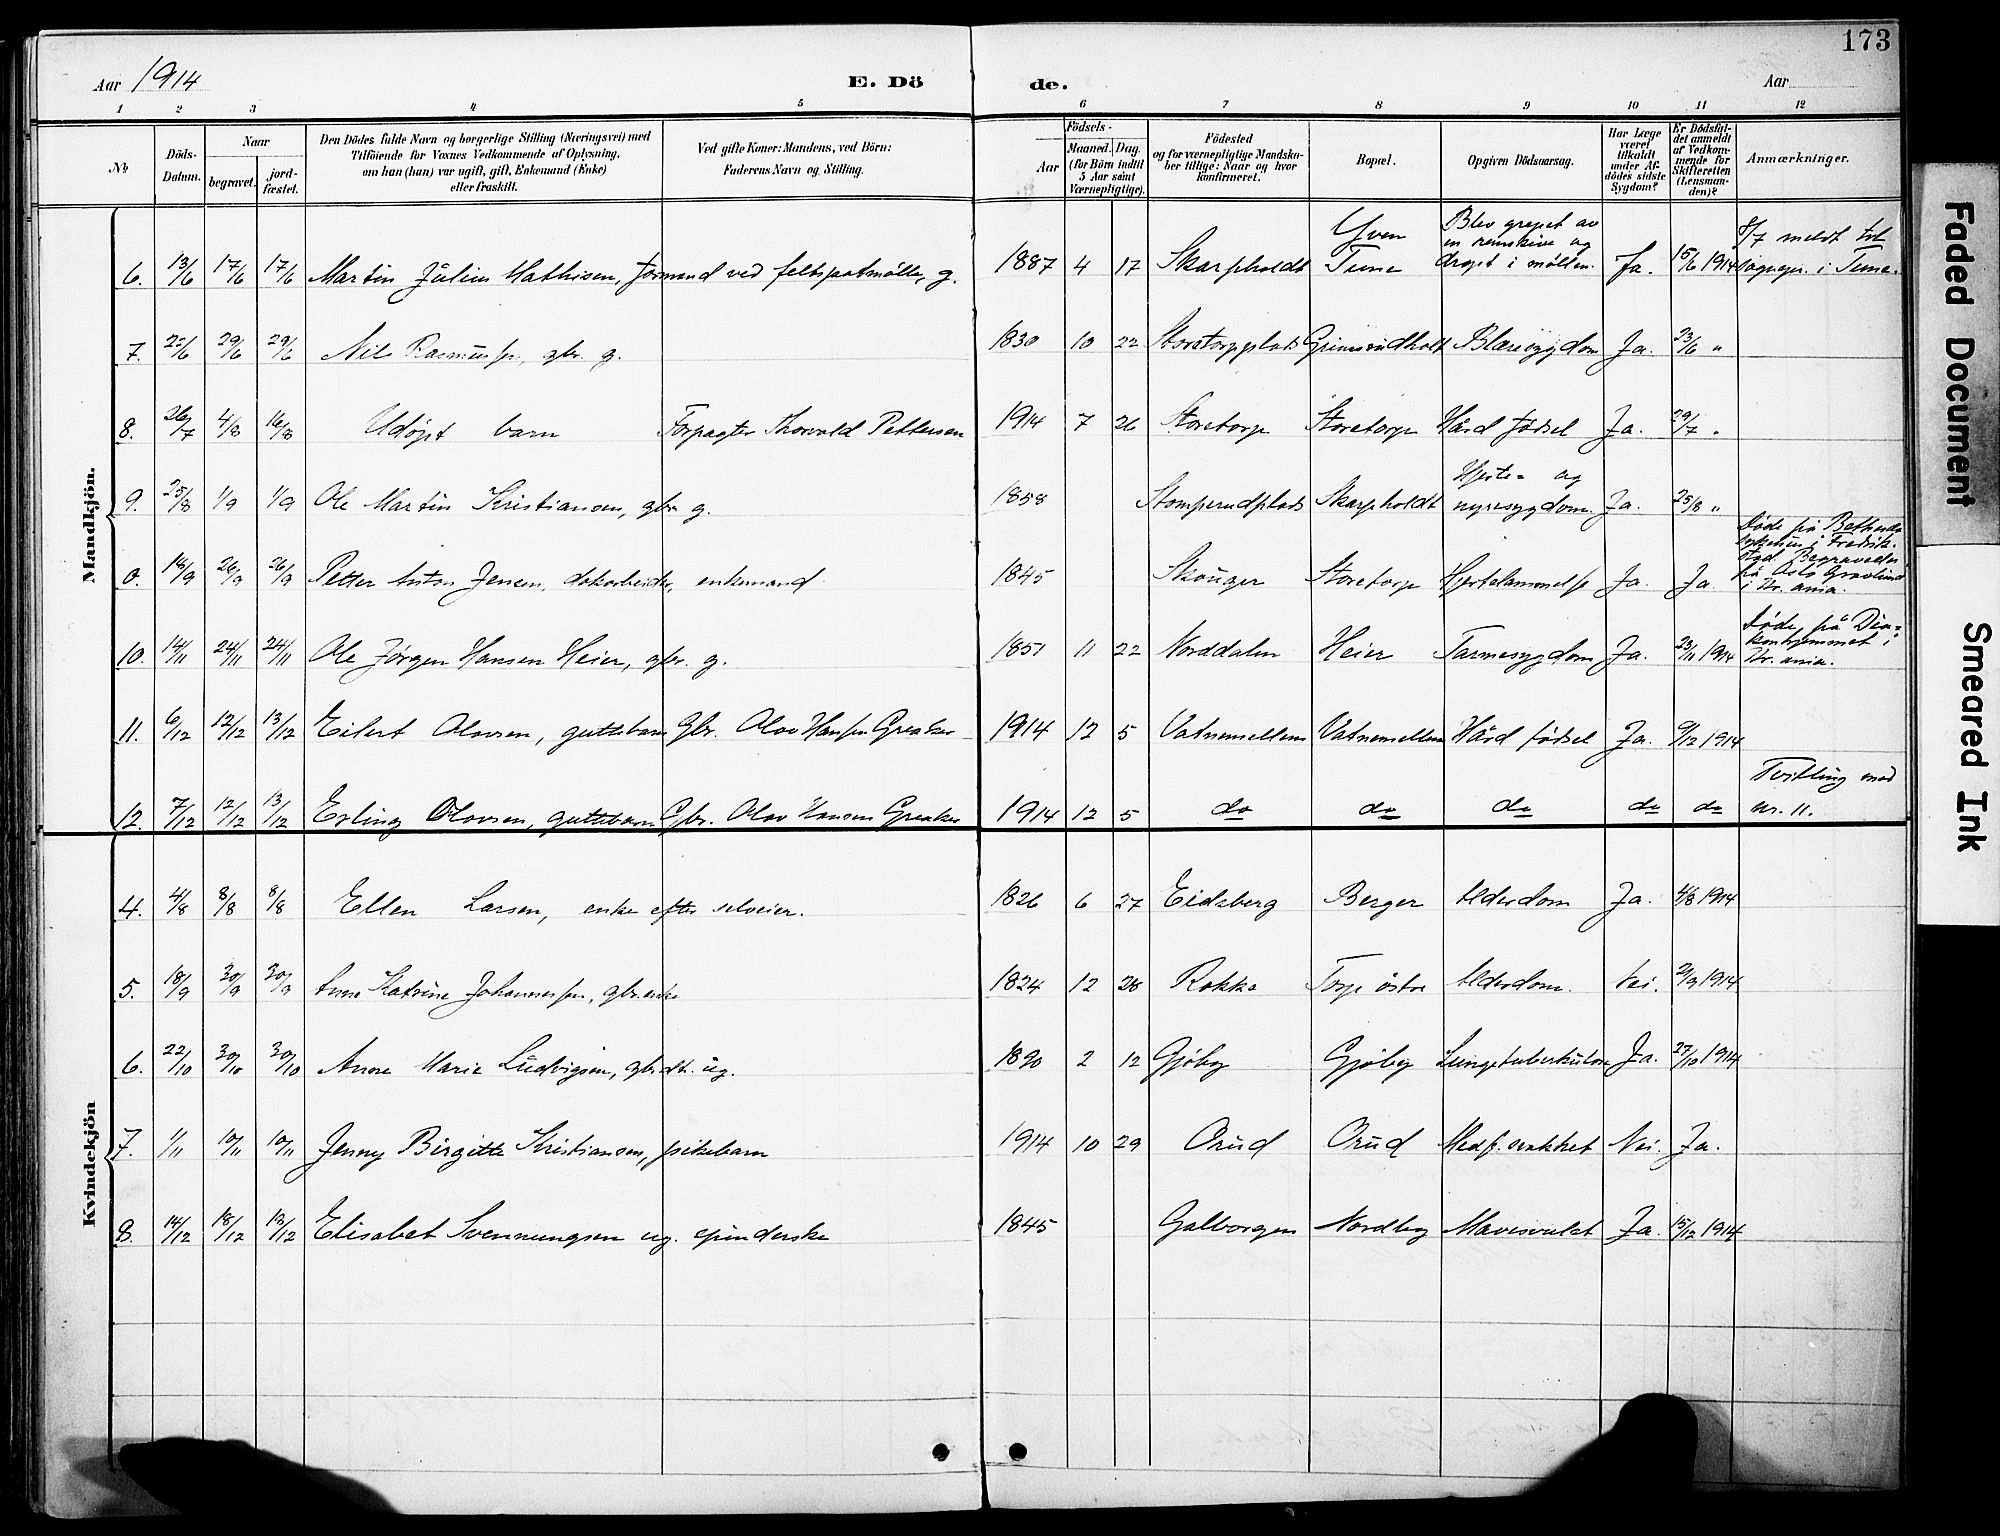 173
Aar 1914 E. Dö de. Aar
1 2 3 4 5 6 7 8 9 10 11 12
№ Döds-Datum. Naar begravet. jordfæstet. Den Dödes fulde Navn og borgerlige Stilling (Næringsvei) med Tilföiende for Voxnes Vedkommende af Oplysning. om han (hun) var ugift, gift, Enkemand (Enke) eller fraskilt. Ved gifte Koner: Mandens, ved Börn: Faderens Navn og Stilling. Födsels- Aar Maaned. Dag. (for Börn indtil 5 Aar samt Værnepligtige). Födested og for værnepligtige Mandskaber tillige: Naar og hvor konfirmeret. Bopæl. Opgiven Dödsaarsag. Har Læge været tilkaldt under Afdödes sidste Sygdom? Er Dödsfaldet anmeldt af Vedkommende for Skifteretten (Lensmanden)? Anmærkninger.
Mandkjön.
6. 13/6 17/6 17/6 Martin Julius Mathisen, formand ved feltspatmölle, g. 1887 4 17 Skarpholdt Yven Tune Blev grepet av en remskive og dræpt i möllen. Ja. 15/6 1914 8/7 meldt til sognepr. i Tune.
7. 22/6 29/6 29/6 Nils Rasmussen, gbr. g. 1830 10 22 Storetorpplads Grimsrudholt Blæresygdom Ja. 23/6 "
8. 26/7 4/8 16/8 Udöpt barn Forpagter Thorvald Pettersen 1914 7 26 Storetorp Storetorp Hård födsel Ja. 29/7 "
9. 25/8 1/9 1/9 Ole Martin Kristiansen, gbr. g. 1858 Stomperudplads Skarpholdt Hjerte- og nyresygdom. Ja. 25/8 "
0. 18/9 26/9 26/9 Petter Anton Jensen, dokarbeider, enkemand 1845 Skouger Storetorp Hjertelammelse Ja. Ja. Döde på Bethesda sykehus i Fredrikstad. Begravedes på Oslo Gravlund i Kr.ania.
10. 14/11 24/11 24/11 Ole Jörgen Hansen Heier, gbr. g. 1851 11 22 Norddalen Heier Tarmesygdom Ja. 23/11 1914 Döde på Diakonhjemmet i Kr.ania.
11. 6/12 12/12 13/12 Eilert Olavsen, guttebarn Gbr. Olav Hansen Greaker 1914 12 5 Vatnemellem Vatnemellem Hård födsel Ja. 9/12 1914
12. 7/12 12/12 13/12 Erling Olavsen, guttebarn Gbr. Olav Hansen Greaker 1914 12 5 do do do do do Tvilling med nr. 11.
Kvindekjön
4. 4/8 8/8 8/8 Ellen Larsen, enke efter selveier. 1826 6 27 Eidsberg Berger Alderdom Ja. 4/8 1914
5. 18/9 30/9 30/9 Anne Katrine Johannessen, gbr.enke 1824 12 28 Rokke Torp östre Alderdom. Nei. 21/9 1914
6. 22/10 30/10 30/10 Anne Marie Ludvigsen, gbr.dt. ug. 1890 2 12 Gjöby Gjöby Lungetuberkulose Ja. 27/10 1914
7. 1/11 10/11 10/11 Jenny Birgitte Kristiansen, pikebarn 1914 10 29 Orud Orud Medf. svakhet Nei. Ja.
8. 14/12 18/12 19/12 Elisabet Svennungsen ug. spinderske 1845 Galborgen Nordby Mavesvulst Ja. 15/12 1914
Faded Document
Smeared Ink